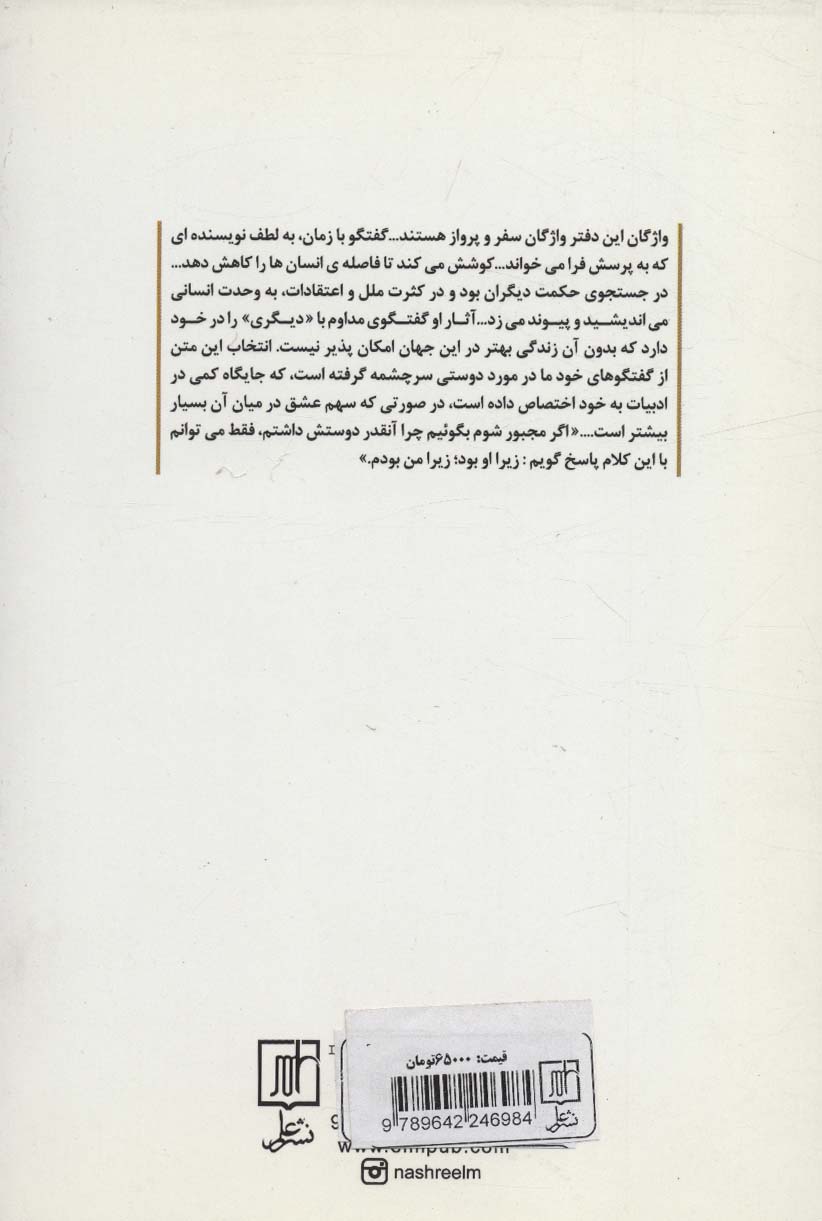 واژگان این دفتر واژگان سفر و پرواز هستند...گفتگو با زمان، به لطف نویسنده ای
که به پرسش فرا می خواند...کوشش می کند تا فاصله ی انسان ها را کاهش دهد...
در جستجوی حکمت دیگران بود و در کثرت ملل و اعتقادات، به وحدت انسانی
می اندیشید و پیوند می زد...آثار او گفتگوی مداوم با «دیگری» را در خود
دارد که بدون آن زندگی بهتر در این جهان امکان پذیر نیست. انتخاب این متن
از گفتگوهای خود ما در مورد دوستی سرچشمه گرفته است، که جایگاه کمی در
ادبیات به خود اختصاص داده است، در صورتی که سهم عشق در میان آن بسیار
بیشتر است....«اگر مجبور شوم بگوئیم چرا آنقدر دوستش داشتم، فقط می توانم
با این کلام پاسخ گویم : زیرا او بود؛ زیرا من بودم.»
قیمت: ۶۵۰۰۰تومان
9 789642 246984
نشر علم
نشر علم
nashreelm